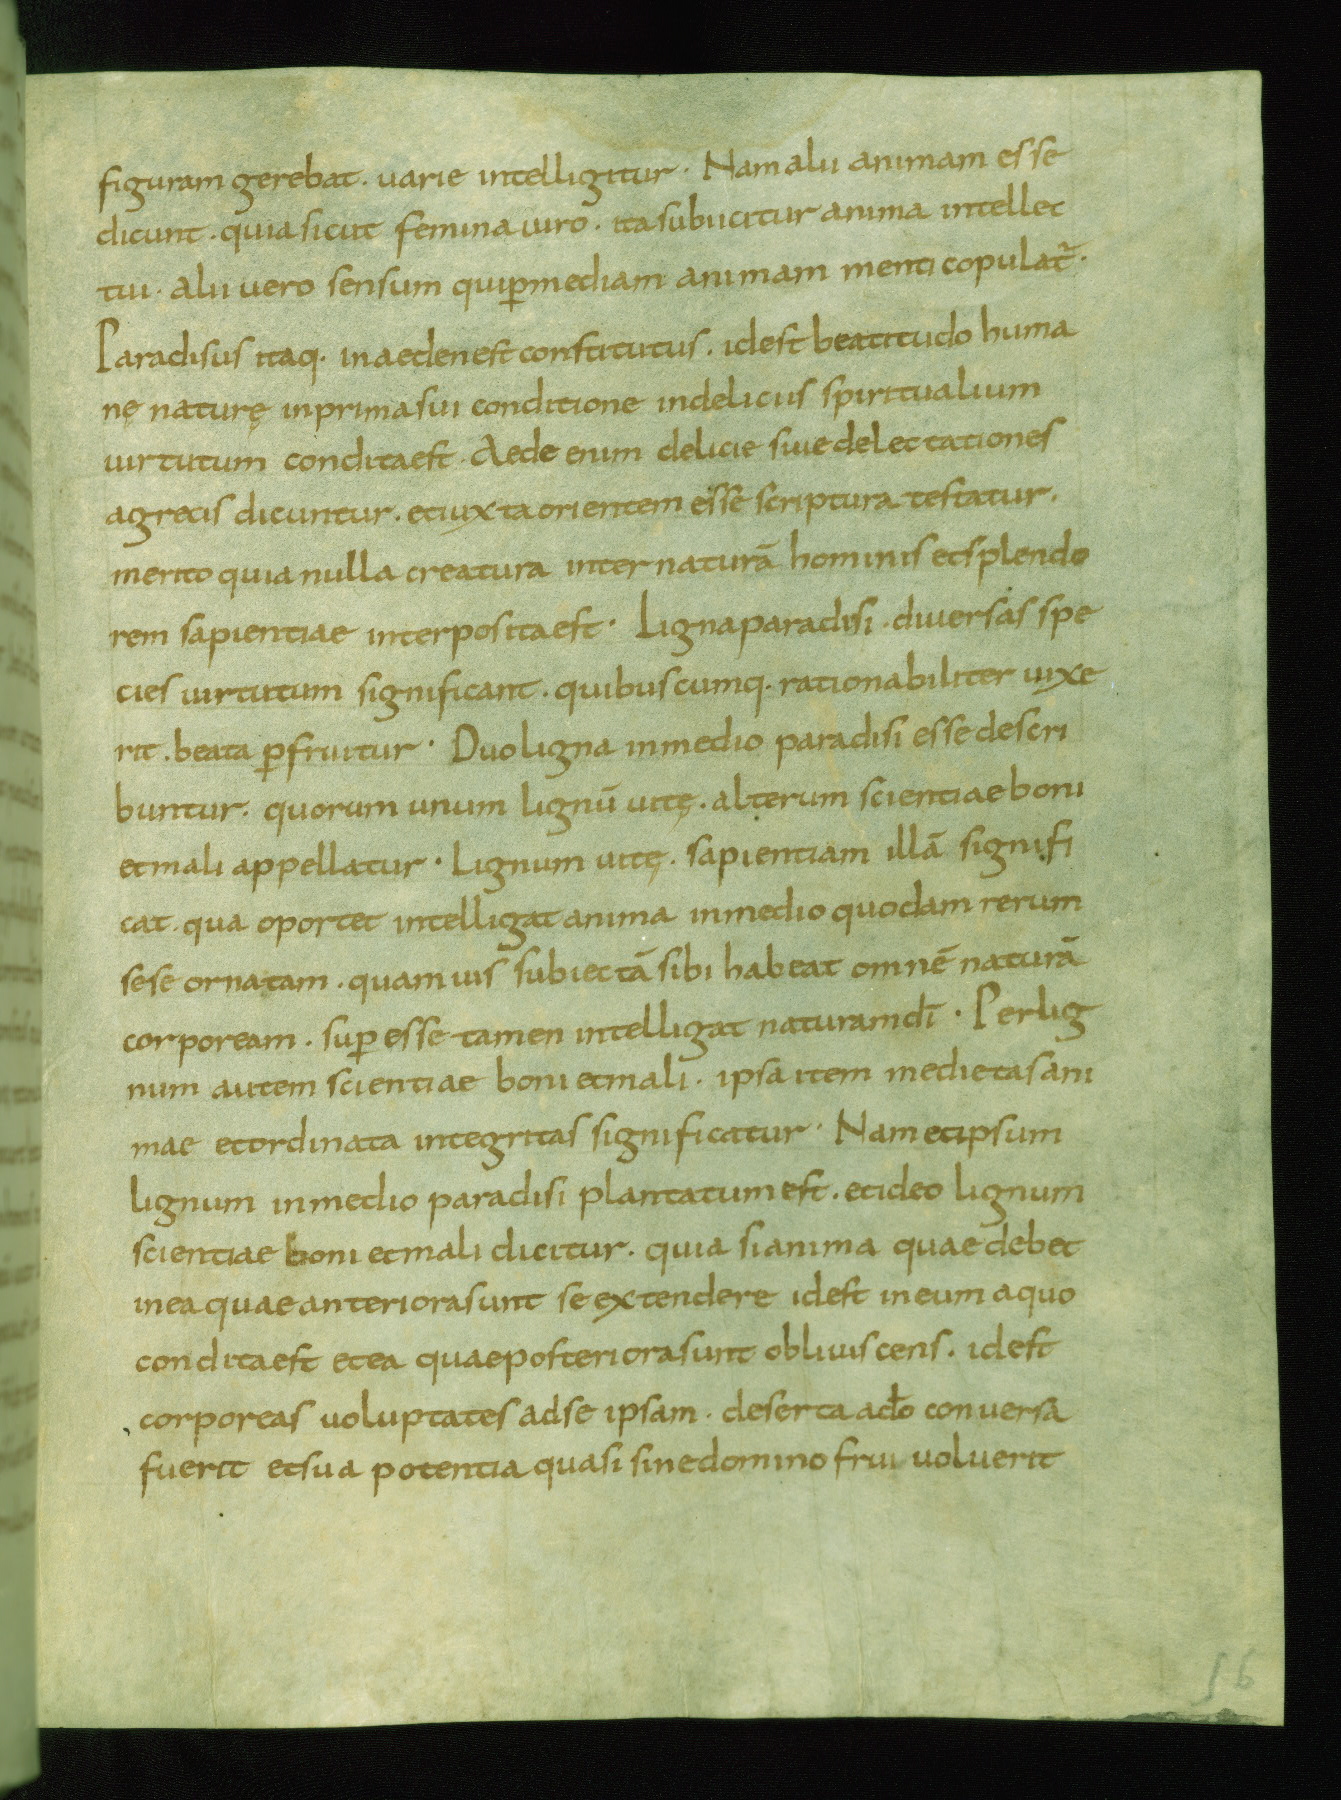 figuram gerebat. uarie intelligitur. Nam alii animam esse
dicunt. quia sicut femina uiro. ita subiicitur anima intellec
tui. alii uero sensum qui ꝑ mediam animam menti copulat̄.
Paradisus itaq. in aeden est constitutus. id est beatitudo huma
nę naturę in prima sui conditione in deliciis spiritualium
uirtutum condita est. Aede enim delicie siue delectationes
a grecis dicuntur. et iuxta orientem esse scriptura testatur.
merito quia nulla creatura inter naturā hominis et splendo
rem sapientiae interposita est. Ligna paradisi. diuersas spe
cies uirtutum significant. quibuscumq. rationabiliter uixe
rit. beata ꝑfruitur. Duo ligna in medio paradisi esse descri
buntur. quorum unum lignū uitę. alterum scientiae boni
et mali appellatur. Lignum uitę. sapientiam illā signifi
cat. qua oportet intelligat anima in medio quodam rerum
sese ornatam. quamuis subiectā sibi habeat omnē naturā
corpoream. suꝑ esse tamen intelligat naturam dī. Per lig
num autem scientiae boni et mali. ipsa item medietas ani
mae et ordinata integritas significatur. Nam et ipsum
lignum in medio paradisi plantatum est. et ideo lignum
scientiae boni et mali dicitur. quia si anima quae debet
in ea quae anteriora sunt se extendere id est in eum a quo
condita est et ea quae posteriora sunt obliuiscens. id est
corporeas uoluptates ad se ipsam. deserta a dō conuersa
fuerit et sua potentia quasi sine domino frui uoluerit
56